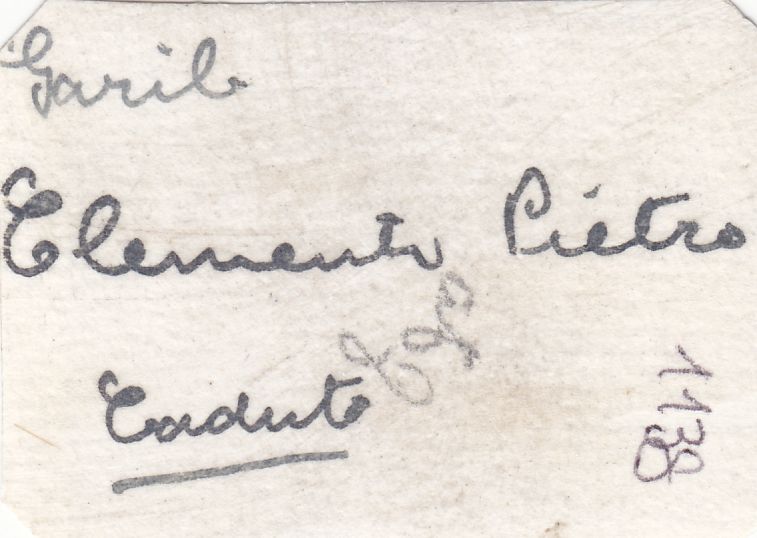 Garib
Clemente Pietro
Caduto
1138